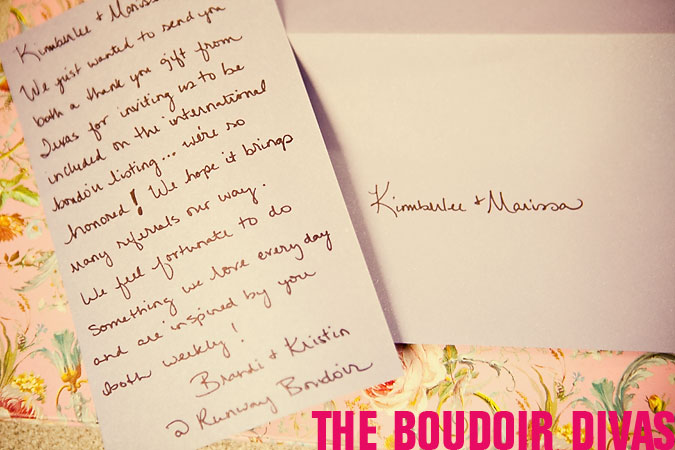 Kimberlee + Marissa
We just wanted to send you
both a thank you gift from
Texas for inviting us to be
included on the international
boudoir listing... we're so
honored! We hope it brings
many referrals our way.
We feel fortunate to do
something we love everyday
and are inspired by you
both weekly!
Brandi + Kristin
@ Runway Boudoir
Kimberlee + Marissa
THE BOUDOIR DIVAS